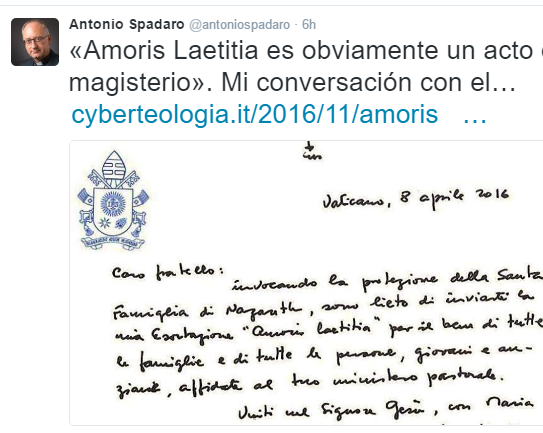 Antonio Spadaro @antoniospadaro · 6h
«Amoris Laetitia es obviamente un acto
magisterio». Mi conversación con el…
cyberteologia.it/2016/11/amoris …
Vaticano, 8 aprile 2016
Caro fratello:
invocando la protezione della Santa
Famiglia di Nazareth, sono lieto di inviarti la
mia Esortazione "Amoris laetitia" per il bene di tutte
le famiglie e di tutte le persone, giovani e an-
ziane, affidate al tuo ministero pastorale.
Uniti nel Signore Gesù, con Maria